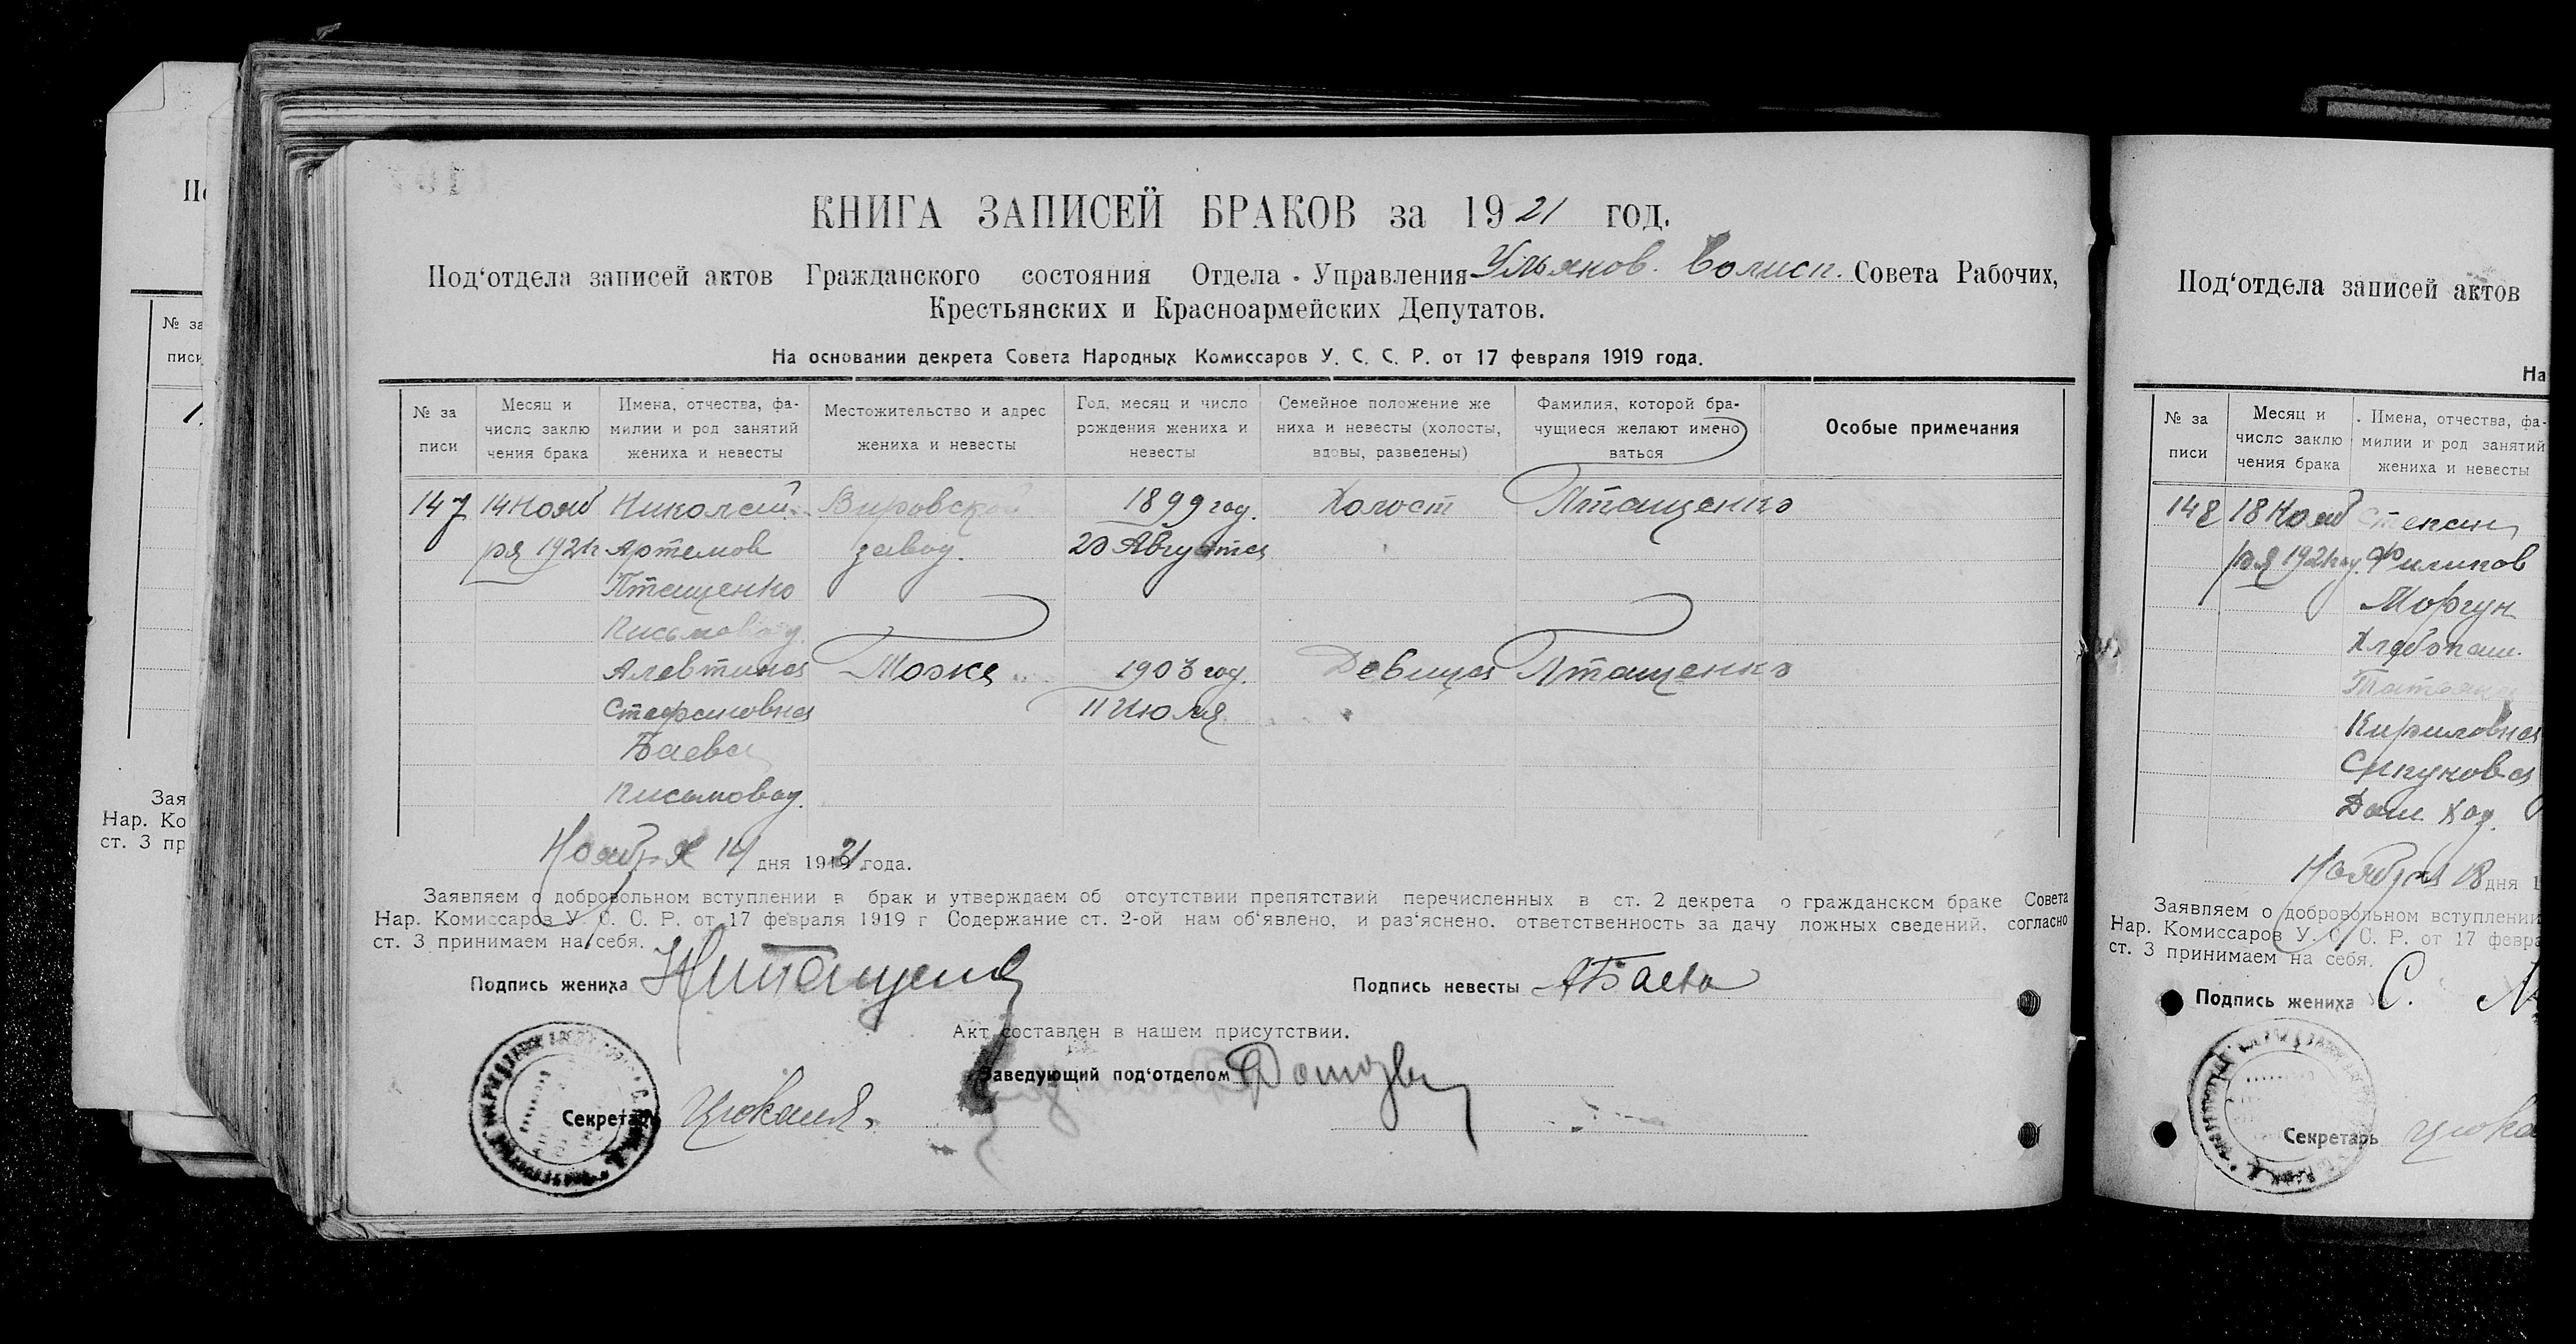 КНИГА ЗАПИСЕЙ БРАКОВ за 1921 год.
Под‘отдела записей актов Гражданского состояния Отдела Управления Ульянов. Волисп. Совета Рабочих,
Крестьянских и Красноармейских Депутатов.
На основании декрета Совета Народных Комиссаров У. С. С. Р. от 17 февраля 1919 года.
№ за писи
Месяц и число заклю чения брака
Имена, отчества, фа- милии и род занятий жениха и невесты
Местожительство и адрес жениха и невесты
Год, месяц и число рождения жениха и невесты
Семейное положение же ниха и невесты (холосты, вдовы, разведены)
Фамилия, которой бра- чущиеся желают имено ваться
Особые примечания
147 14 Нояб Николай Вировской 1899 год. Холост Птащенко
ря 1921г Артемов завод. 20 Августа
Птащенко
Письмовод.
Алевтина Тоже 1903 год. Девица Птащенко
Стефановна 11 Июля
Баева
Письмовод.
Ноября 14 дня 1921 года.
Заявляем о добровольном вступлении в брак и утверждаем об отсутствии препятствий перечисленных в ст. 2 декрета о гражданском браке Совета
Нар. Комиссаров У. С. С. Р. от 17 февраля 1919 г Содержание ст. 2-ой нам об‘явлено, и раз‘яснено, ответственность за дачу ложных сведений, согласно
ст. 3 принимаем на себя.
Подпись жениха НПтащенко Подпись невесты АБаева
Акт составлен в нашем присутствии.
Заведующий под‘отделом
Секретарь
Под‘отдела записей актов
На
№ за писи
Месяц и число заклю чения брака
Имена, отчества, фа- милии и род занятий жениха и невесты
148 18 Нояб Степан
ря 1921 год. Филипов
Моргун
Хлебопаш.
Татьяна
Кириловна
Дом. Хоз.
Ноября 18 дня 1
Заявляем о добровольном вступлении
Нар. Комиссаров У. С. С. Р. от 17 февра
ст. 3 принимаем на себя.
Подпись жениха С.
Секретарь
№ за
писи
Зая
Нар. Ко
ст. 3 пр